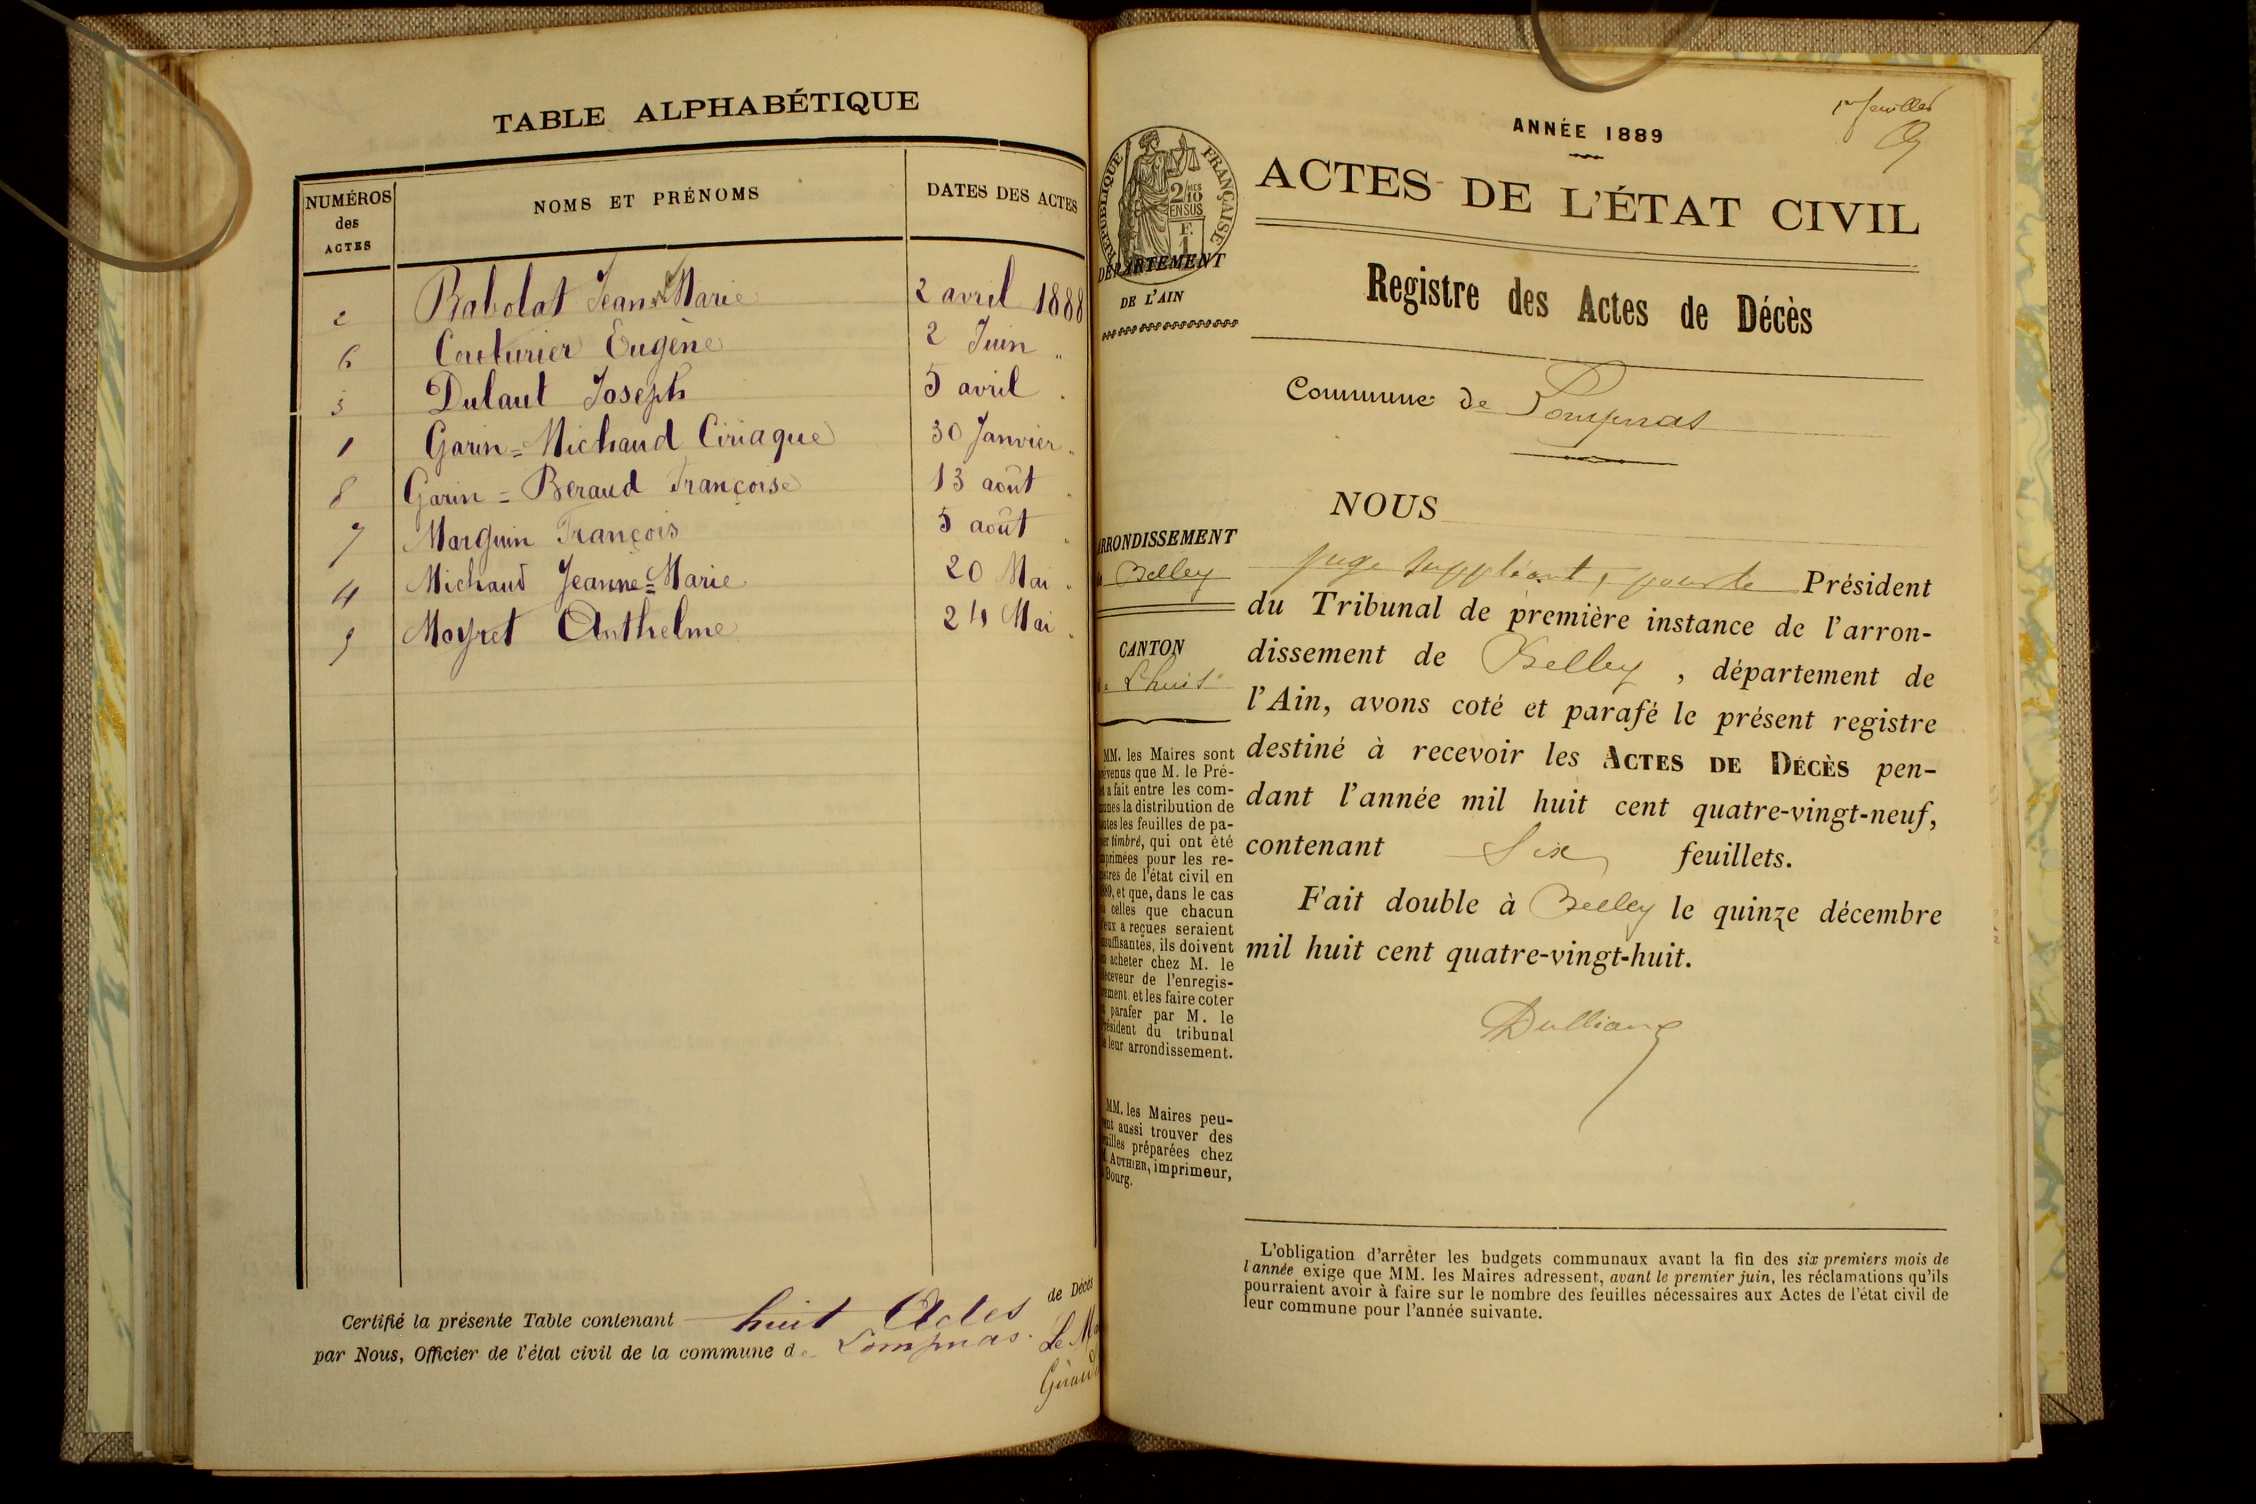 TABLE ALPHABÉTIQUE
NUMÉROS des ACTES NOMS ET PRÉNOMS DATES DES ACTES
2 Rabolat Jean Marie 2 avril 1888
6 Couturier Eugène 2 Juin "
3 Dulaut Joseph 5 avril "
1 Garin=Michaud Ciriaque 30 Janvier "
8 Garin=Beraud Françoise 13 août "
7 Marguin François 5 août "
4 Michaud Jeanne=Marie 20 Mai "
5 Moyret Anthelme 24 Mai "
Certifié la présente Table contenant huit Actes de Décès
par Nous, Officier de l'état civil de la commune de Lompnas. Le
1er feuillet
ANNÉE 1889
ACTES DE L'ÉTAT CIVIL
RÉPUBLIQUE FRANÇAISE
2/10 EN SUS
F. 1
DÉPARTEMENT
DE L'AIN
Registre des Actes de Décès
Commune de Lompnas
ARRONDISSEMENT
Belley
CANTON
Lhuis
MM. les Maires sont
prévenus que M. le Pré-
fet a fait entre les com-
munes la distribution de
toutes les feuilles de pa-
pier timbré, qui ont été
imprimées pour les re-
gistres de l'état civil en
1889, et que, dans le cas
où celles que chacun
d'eux a reçues seraient
insuffisantes, ils doivent
en acheter chez M. le
Receveur de l'enregis-
trement et les faire coter
et parafer par M. le
Président du tribunal
de leur arrondissement.
MM. les Maires peu-
vent aussi trouver des
feuilles préparées chez
M. AUTHIER, imprimeur,
à Bourg.
NOUS
juge suppléant, pour le Président
du Tribunal de première instance de l'arron-
dissement de Belley, département de
l'Ain, avons coté et parafé le présent registre
destiné à recevoir les ACTES DE DÉCÈS pen-
dant l'année mil huit cent quatre-vingt-neuf,
contenant Six feuillets.
Fait double à Belley le quinze décembre
mil huit cent quatre-vingt-huit.
L'obligation d'arrêter les budgets communaux avant la fin des six premiers mois de
l'année exige que MM. les Maires adressent, avant le premier juin, les réclamations qu'ils
pourraient avoir à faire sur le nombre des feuilles nécessaires aux Actes de l'état civil de
leur commune pour l'année suivante.